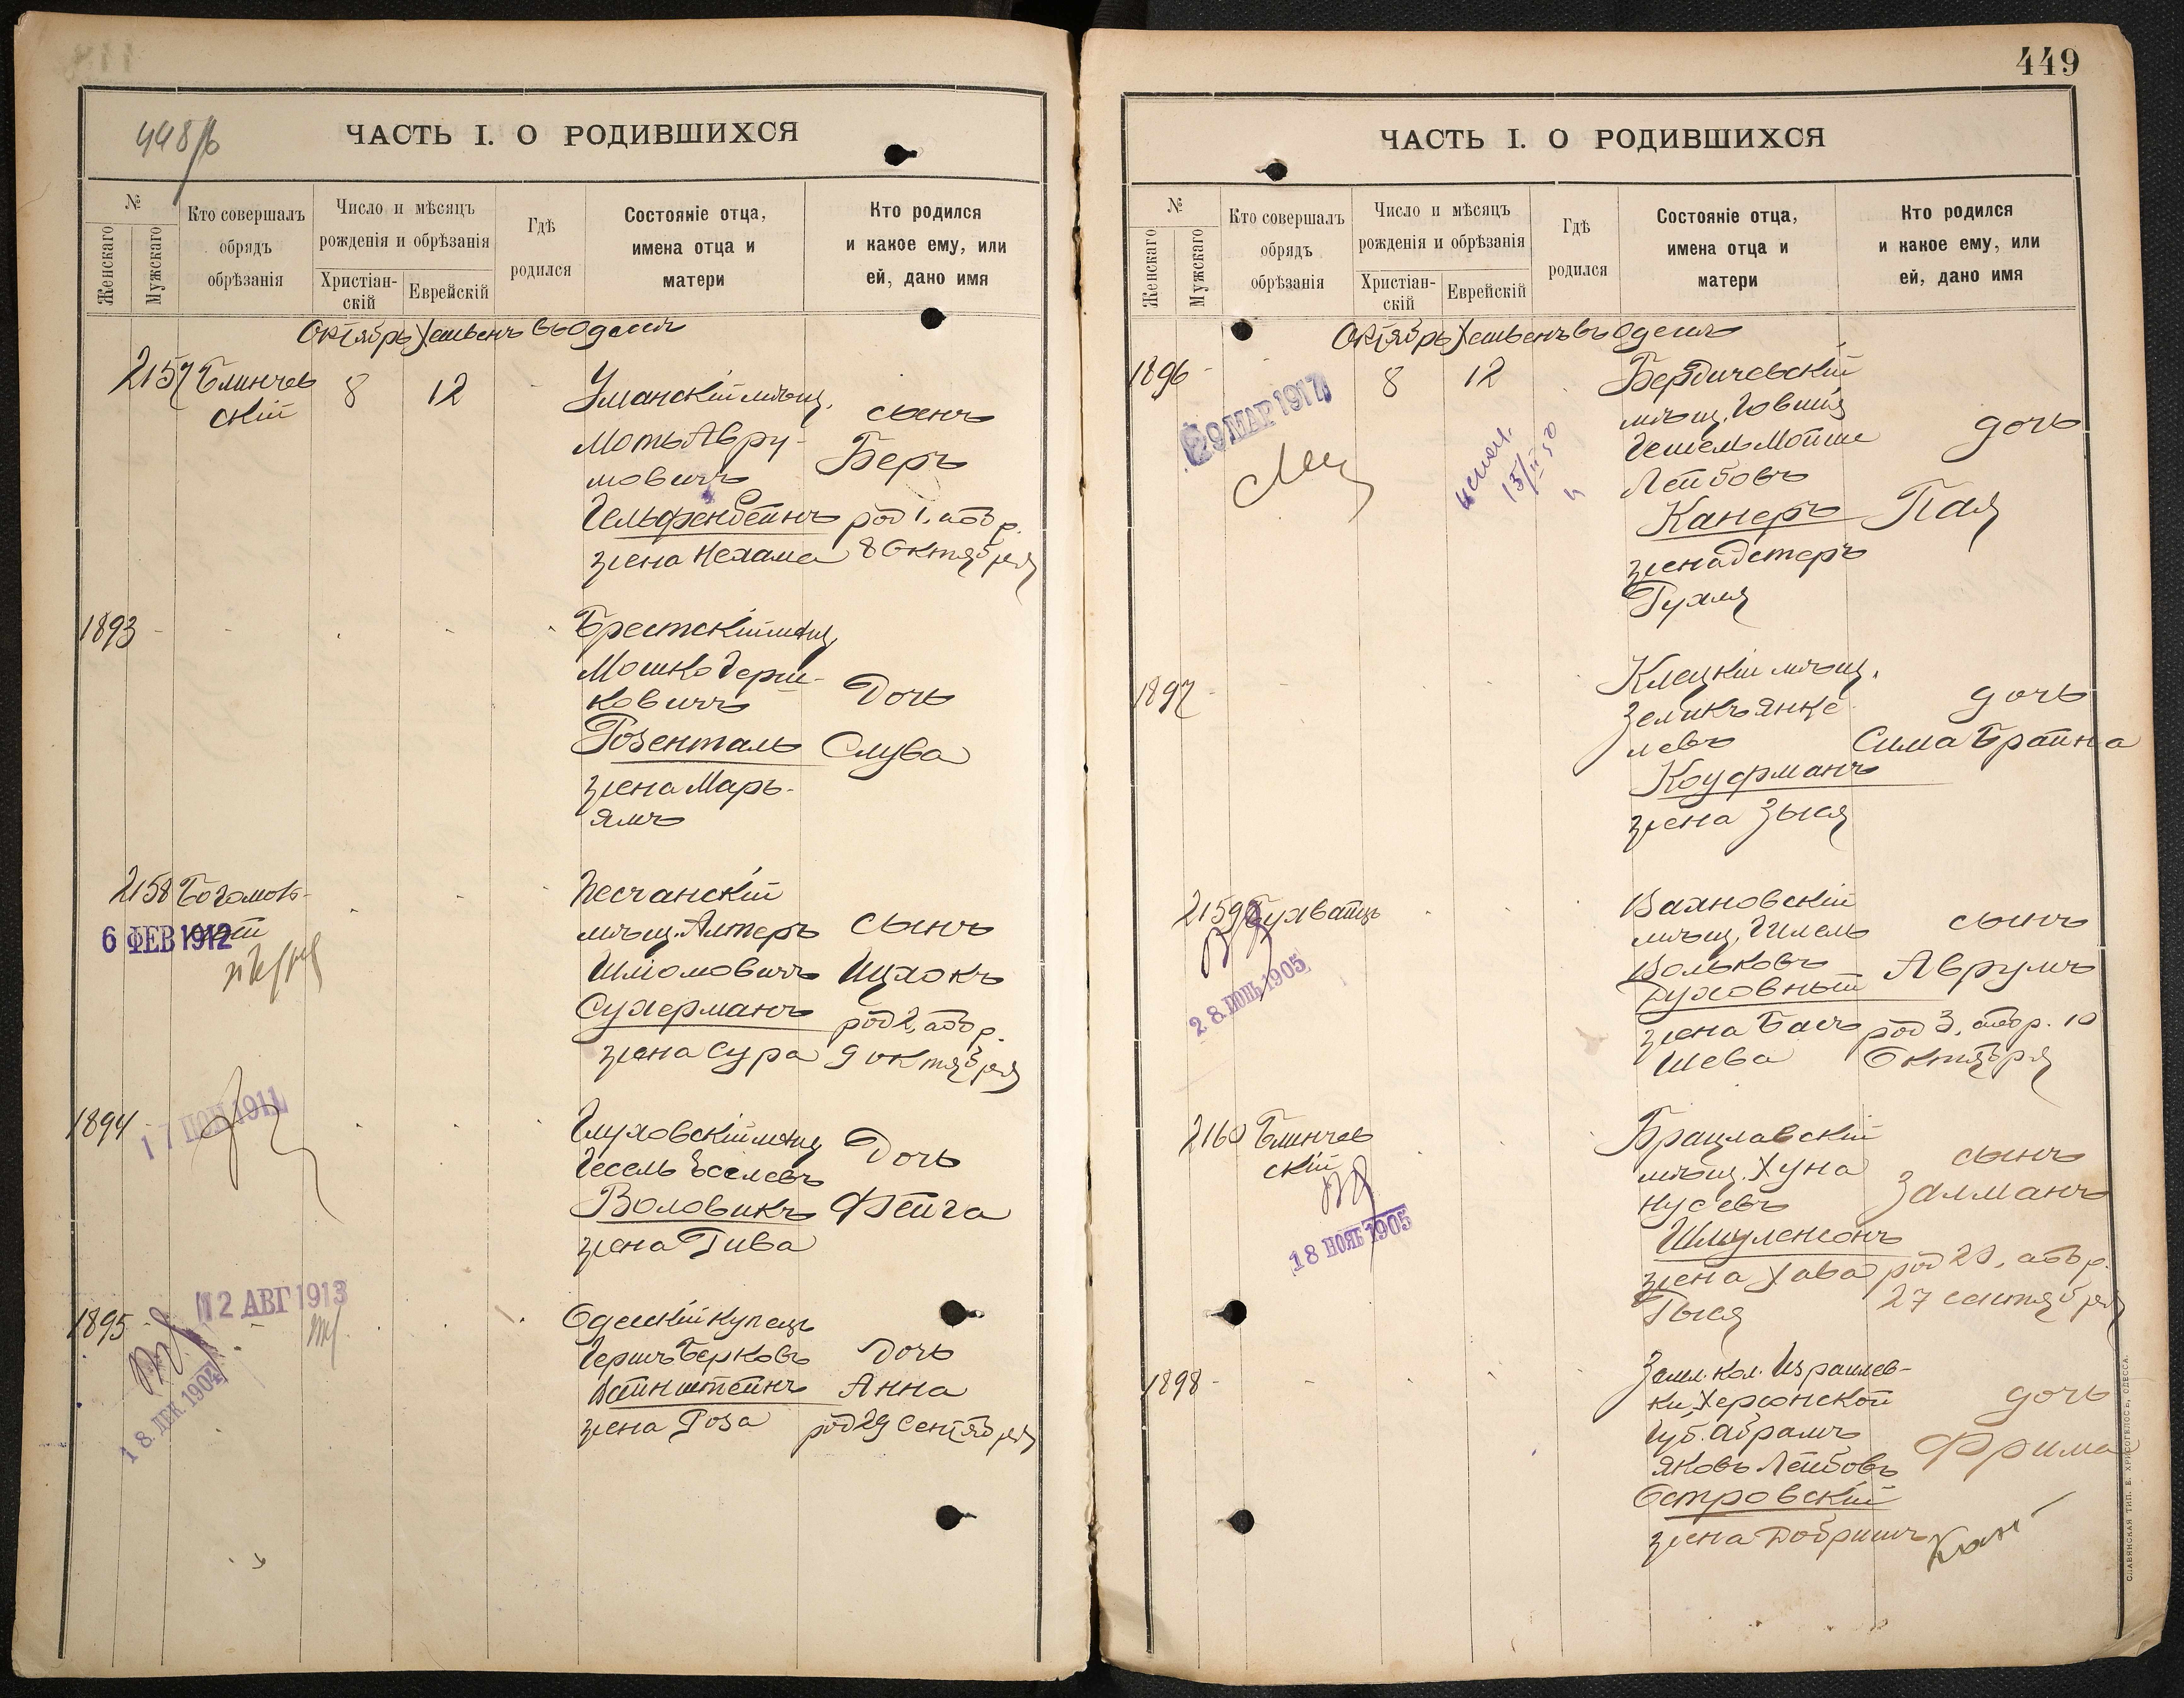 448/б
ЧАСТЬ I. О РОДИВШИХСЯ
№
Женскаго
Мужскаго
Кто совершалъ
обрядъ
обрѣзанія
Число и мѣсяцъ
рожденія и обрѣзанія
Христіан-
скій
Еврейскій
Гдѣ
родился
Состояніе отца,
имена отца и
матери
Кто родился
и какое ему, или
ей, дано имя
Октябрь Хешвенъ въ Одессѣ
2157 Блинчев
ский
8
12
Уманскій мѣщ.
Моть Авру-
мовичъ
Гельфенбейнъ
жена Нехама
сынъ
Беръ
род 1, або р.
8 Октября
1893
Брестскій мѣщ.
Мошко Герш-
ковичъ
Розенталь
жена Марь-
ямъ
Дочь
Слува
2158
6 ФЕВ 1912
Песчанскій
мѣщ. Алтеръ
Шліомовичъ
Сухерманъ
жена Сура
сынъ
Ицхокъ
род 2, або р.
9 октября
1894
17 1911
Глуховскій мѣщ
Гесель Іоселевъ
Воловикъ
жена Гива
Дочь
Фейга
1895
12 АВГ 1913
18. ДЕК. 1904
Одесскій купецъ
Гершъ Берковъ
Вайнштейнъ
жена Роза
Дочь
Анна
род 29 Сентября
449
ЧАСТЬ I. О РОДИВШИХСЯ
№
Женскаго
Мужскаго
Кто совершалъ
обрядъ
обрѣзанія
Число и мѣсяцъ
рожденія и обрѣзанія
Христіан-
скій
Еврейскій
Гдѣ
родился
Состояніе отца,
имена отца и
матери
Кто родился
и какое ему, или
ей, дано имя
Октябрь Хешвенъ въ Одессѣ
1896
8
12
9 МАР 1917
Бердичевскій
мѣщ. Іовшія
Гешель Мойше
Лейбовъ
Канеръ
жена Эстеръ
Рухля
дочь
Пая
1897
Клецкій мѣщ.
Зеликъ Янке
левъ
Кауфманъ
жена Зыся
дочь
Сима Брайна
2159 Бухвайцъ
28. 1905
Вахновскій
мѣщ. Гилель
Вольковъ
Духовный
жена Бась
Шева
сынъ
Аврумъ
род 3, або р. 10
Октября
2160 Блинчев
скій
18 НОЯБ 1905
Брацлавскій
мѣщ. Хуна
Нусевъ
Шмуленсонъ
жена Хава
Гыся
сынъ
Залманъ
род 20, або р.
27 сентября
1898
Земл. кол. Израилев-
ки, Херсонской
губ. Абрамъ
Яковъ Лейбовъ
Островскій
жена Добришъ
дочь
Фрима
СЛАВЯНСКАЯ ТИП. Е. ХРИСОГЕЛОСЪ, ОДЕССА.